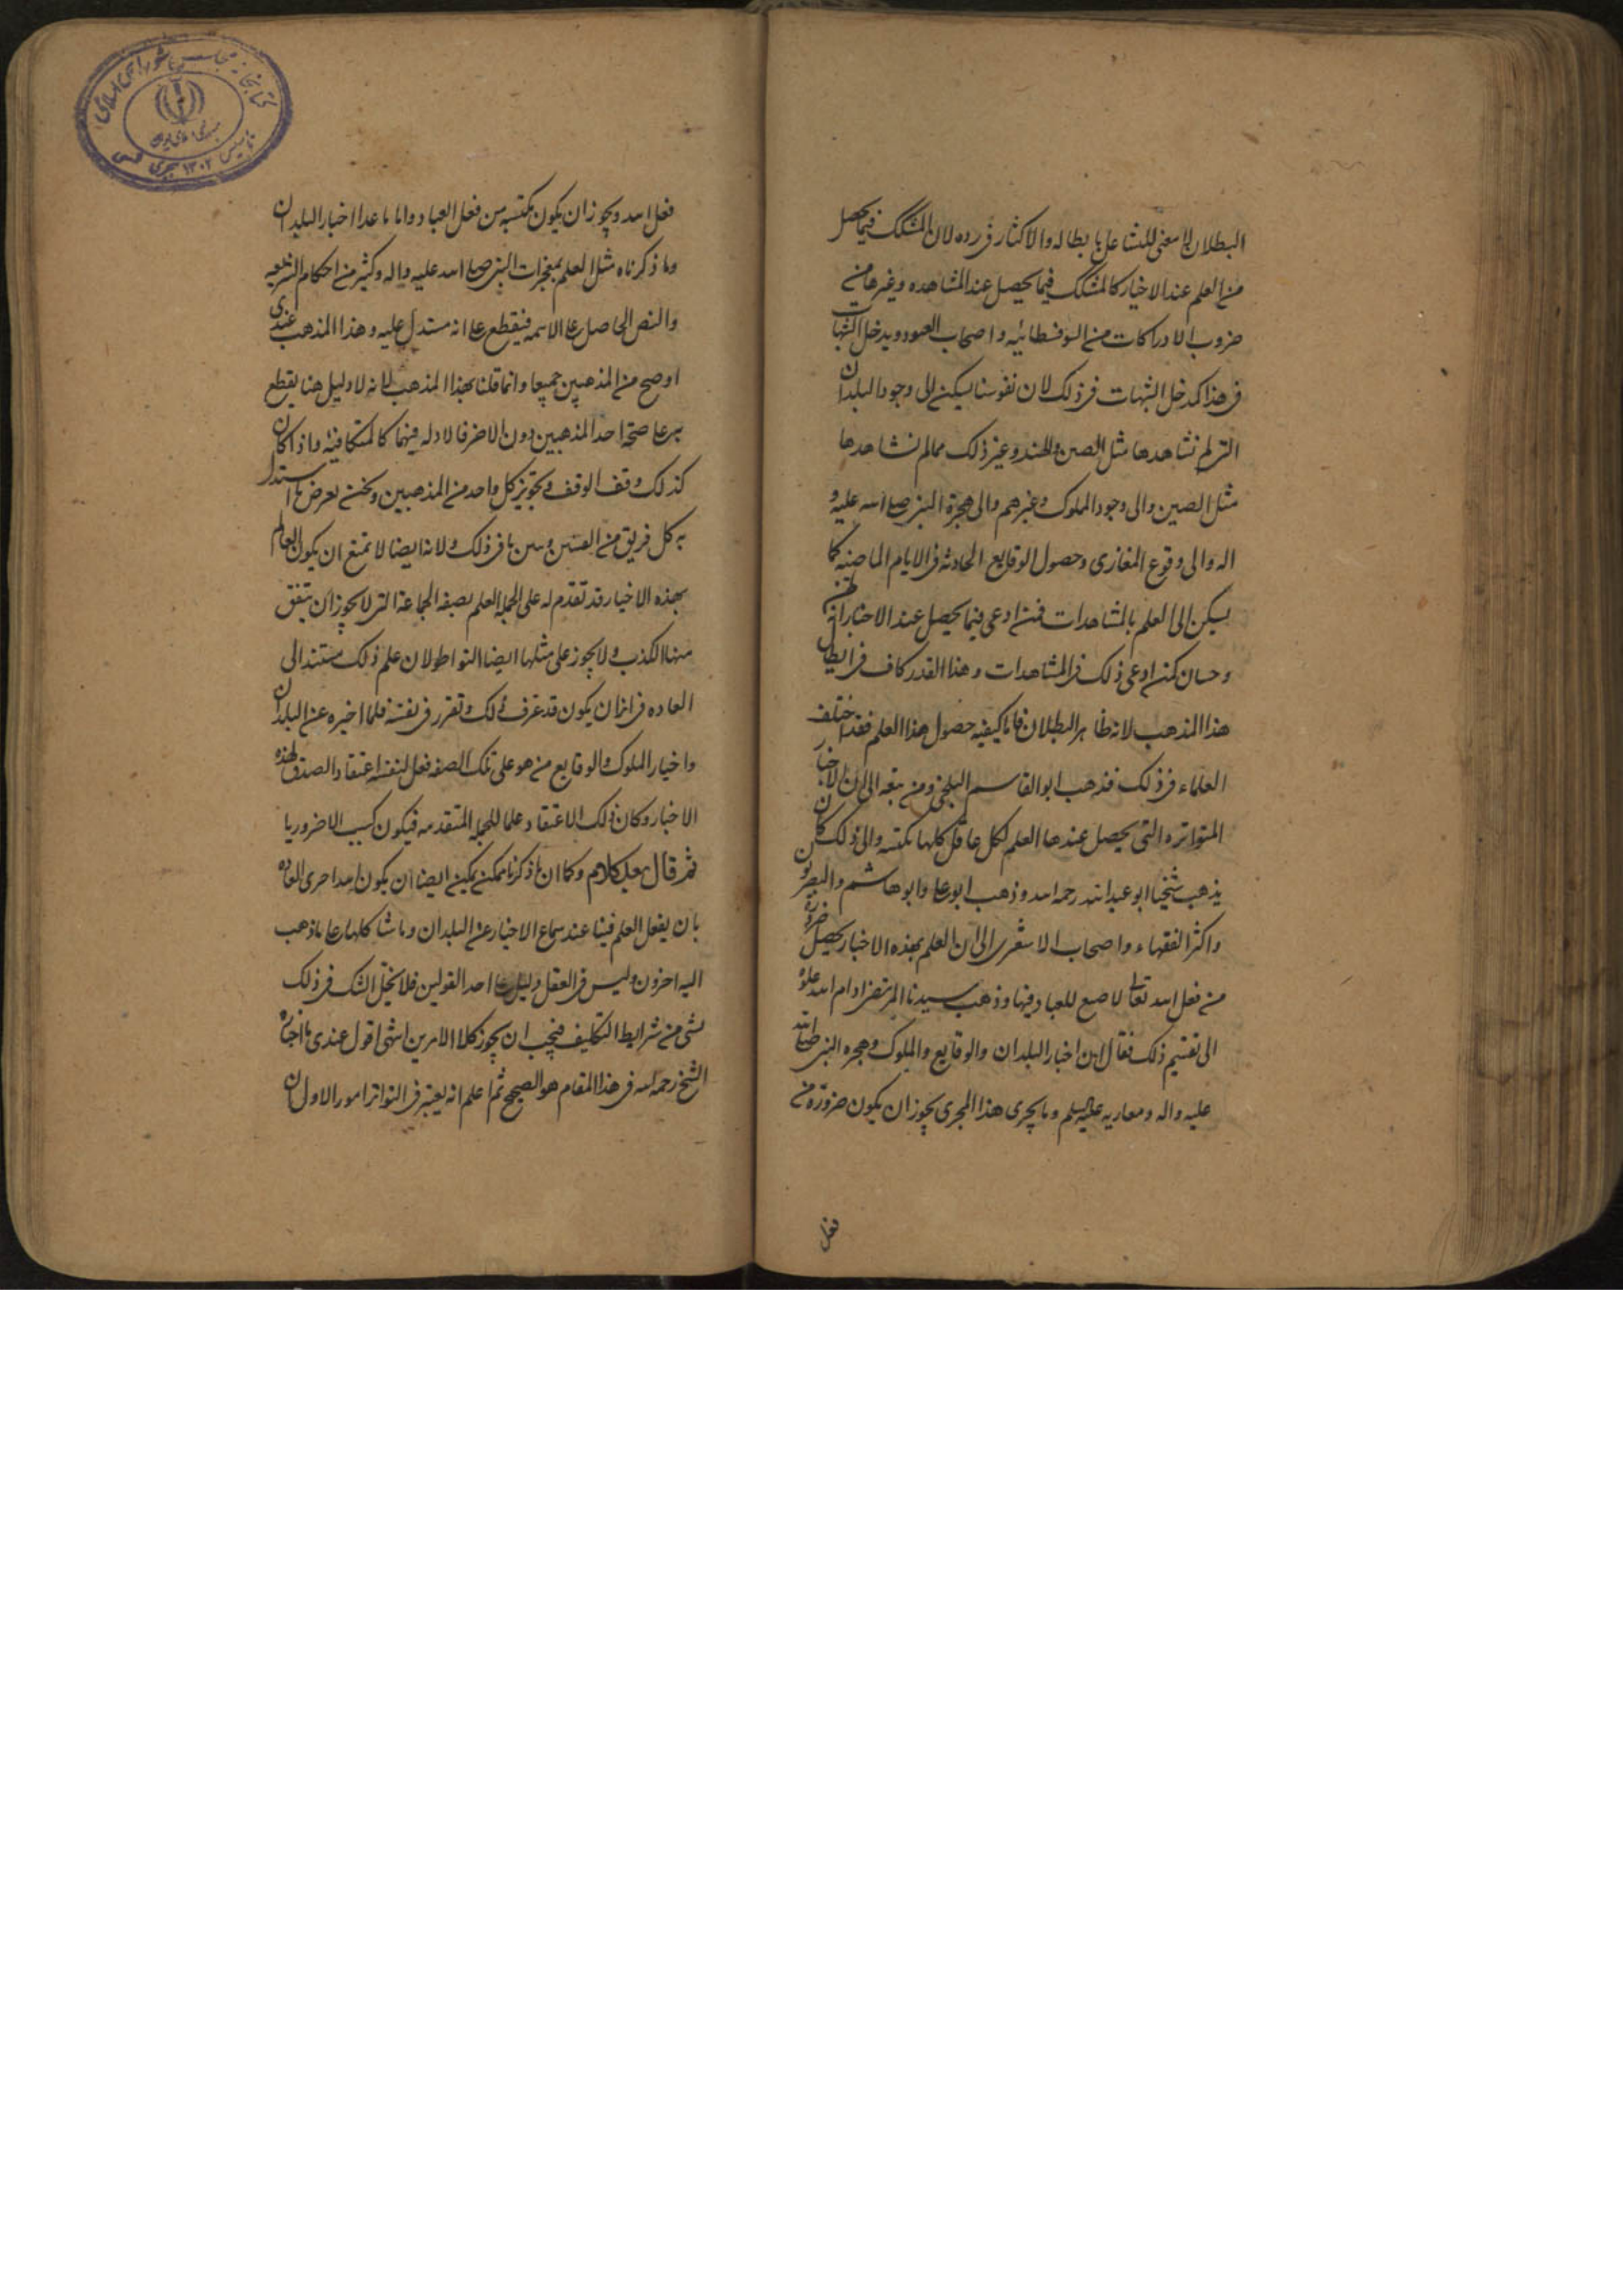 البطلان لا معنى للتشاغل بابطاله والاكثار فى رده لان المشكك فيما يحصل
من العلم عند الاخبار كالمشكك فيما يحصل عند المشاهده وغيرها من
ضروب الادراكات من السوفسطائيه واصحاب العنود ويدخل الشبهات
فى هذا كمدخل الشبهات فى ذلك لان نفوسنا يسكن الى وجود البلدان
التى لم نشاهدها مثل الصين والهند وغير ذلك مما لم نشاهدها
مثل الصين والى وجود الملوك وغيرهم والى هجرة النبى صلى الله عليه و
اله والى وقوع المغازى وحصول الوقايع الحادثة فى الايام الماضيه كما
يسكن الى العلم بالمشاهدات فمن ادعى فيما يحصل عند الاخبار انه ظن
وحسبان كمن ادعى ذلك فى المشاهدات وهذا القدر كاف فى ابطال
هذا المذهب لانه ظاهر البطلان فاما كيفيه حصول هذا العلم فقد اختلف
العلماء فى ذلك فذهب ابو القاسم البلخى ومن تبعه الى ان الاخبار
المتواتره التى يحصل عندها العلم لكل عاقل كلها مكتسبه والى ذلك كان
يذهب شيخنا ابو عبد الله رحمه الله وذهب ابو على وابو هاشم والبصريون
واكثر الفقهاء واصحاب الاشعرى الى ان العلم بهذه الاخبار يحصل ضرورة
من فعل الله تعالى لا صنع للعباد فيها وذهب سيدنا المرتضى ادام الله علوه
الى تقسيم ذلك فقال ان اخبار البلدان والوقايع والملوك وهجره النبى صلى الله
عليه واله ومغازيه عليه السلم وما يجرى هذا المجرى يجوز ان يكون ضرورة من
فعل
فعل الله ويجوز ان يكون مكتسبه من فعل العباد واما ما عدا اخبار البلدان
وما ذكرناه مثل العلم بمعجزات النبى صلى الله عليه واله وكثير من احكام الشريعه
والنص الحاصل على الائمه فيقطع على انه مستدل عليه وهذا المذهب عندى
اوضح من المذهبين جميعا وانما قلنا بهذا المذهب لانه لا دليل هنا يقطع
به على صحة احد المذهبين دون الاخر فالادله فيهما كالمتكافئه واذا كان
كذلك وقف الوقف وتجويز كل واحد من المذهبين ونحن نعرض ما استدل
به كل فريق من الفئتين ونبين ما فى ذلك ولانه ايضا لا تمتنع ان يكون العالم
بهذه الاخبار قد تقدم له على الجملة العلم بصفه الجماعة التى لا يجوز ان يتفق
منها الكذب ولا يجوز على مثلها ايضا التواطؤ لان علم ذلك مستند الى
العاده فى انها ان يكون قد عرف ذلك وتقرر فى نفسه فلما اخبره عن البلدان
واخبار الملوك والوقايع من هو على تلك الصفه فعل لنفسه اعتقاد الصدق لهذه
الاخبار وكان ذلك الاعتقاد علما للجمله المتقدمه فيكون كسبيا لا ضروريا
ثم قال بعد كلام وكما ان ما ذكرنا ممكن يمكن ايضا ان يكون الله اجرى العاده
بان يفعل العلم فينا عند سماع الاخبار عن البلدان وما شاكلها على ما ذهب
اليه اخرون وليس فى العقل دليل على احد القولين فلا يخل الشك فى ذلك
بشى من شرايط التكليف فيجب ان يجوز كلا الامرين انتهى اقول عندى ما اختاره
الشيخ رحمه الله فى هذا المقام هو الصحيح ثم اعلم انه يعتبر فى التواتر امور الاول ان